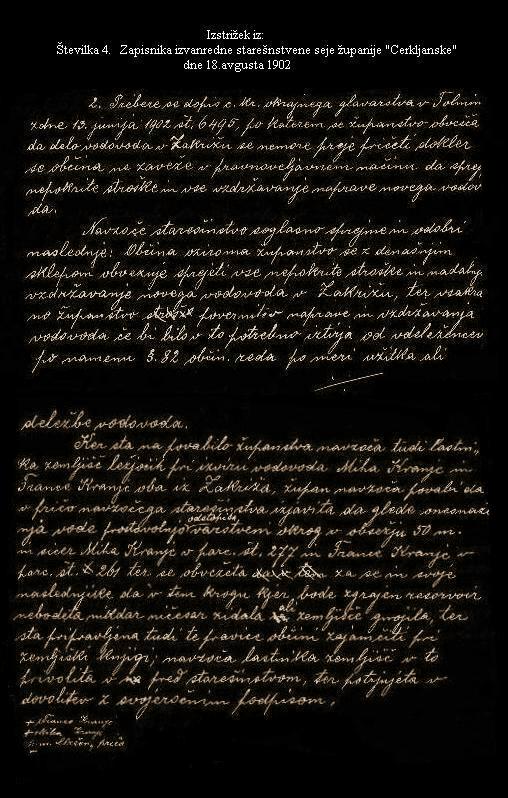 Izstrižek iz:
Številka 4. Zapisnika izvanredne starešnstvene seje županije "Cerkljanske"
dne 18.avgusta 1902
2. Prebere se dopis c. kr. okrajnega glavarstva v Tolmin
z dne 13. junija 1902 št. 6495, po katerem se županstvo obvešča
da delo vodovoda v Zakrižu se nemore preje pričeti dokler
se občina ne zaveže v pravnoveljavnem načinu da sprej
nepokrite stroške in vse vzdrževanje naprave novega vodov
da.
Navzoče starešinstvo soglasno sprejme in odobri
naslednje: Občina oziroma županstvo se z denašnjim
sklepom obvezuje sprejeti vse nepokrite stroške in nadalnje
vzdržavanje novega vodovoda v Zakrižu, ter
no županstvo naprave in vzdržavanja
vodovoda če bi bilo v to potrebno iztirja od vdeležencev
po namenu §. 82 občin. reda po meri užitka ali
deležbe vodovoda.
Ker sta na povabilo županstva navzoča tudi lastni,
ka zemljišč ležjočih pri izviru vodovoda Miha Kranjc in
France Kranjc oba iz Zakriža, župan navzoča povabi da
v pričo navzočega starešinstva izjavita da glede onesnaže
nja vode prostovoljno odstopita varstveni okrog v obsežju 50 m.
in sicer Miha Kranjc v parc. št. 277 in France Kranjc v
parc. št. 261 ter se obvežeta za se in svoje
naslednjike da v tem krogu kjer bode zgrajen rezervoir
nebodeta nikdar ničesar zidala ali zemljišč gnojila, ter
sta pripravljena tudi te pravice občini zajamčiti pri
zemljiški knjigi; navzoča lastnika zemljišč v to
privolita v pred starešinstvom, ter potrjujeta v
dovolitev z svojeročnim podpisom.
+ Franc Kranjc
+ Miha Kranjc
priča